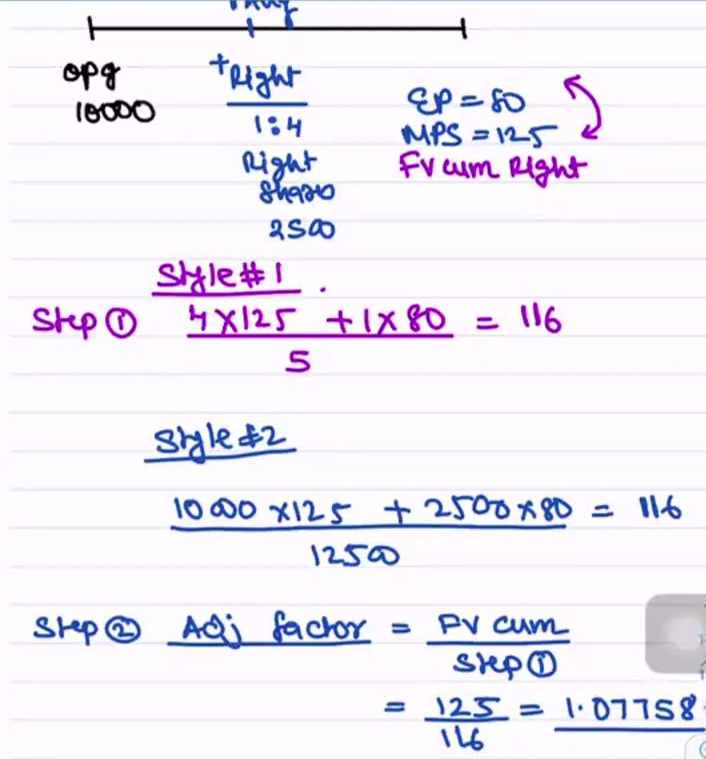 opg
10000
+Right
1:4
Right
Shares
2500
EP = 80
MPS = 125
FV cum Right
Style # 1
Step ① 4 x 125 + 1 x 80 = 116
5
Style # 2
10000 x 125 + 2500 x 80 = 116
12500
Step ② Adj factor = FV cum
Step ①
= 125 = 1.07758
116